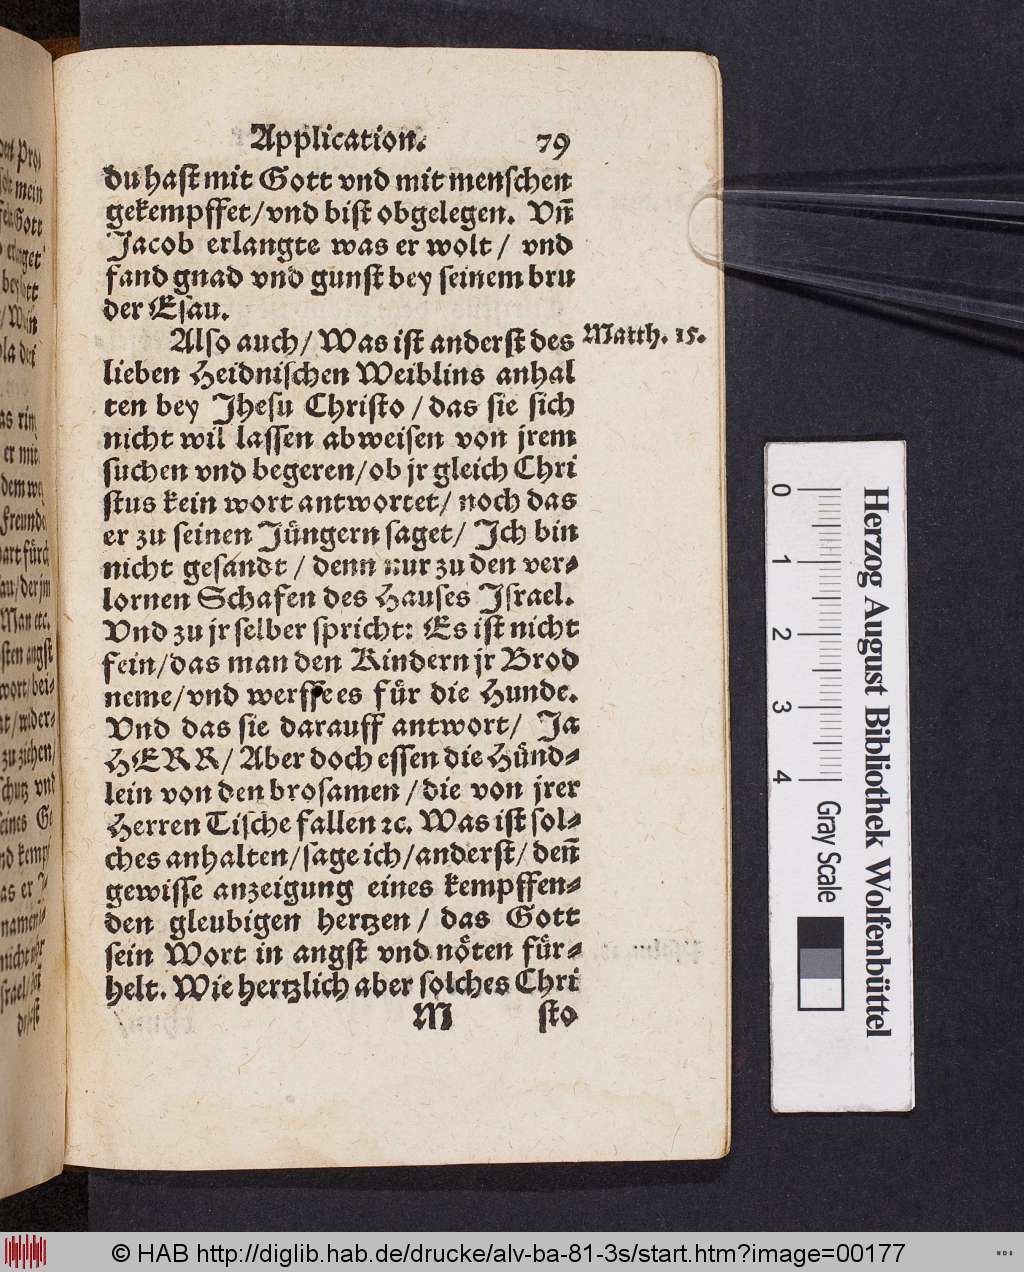 Application. 79
du hast mit Gott vnd mit menschen
gekempffet/vnd bist obgelegen. Vñ
Jacob erlangte was er wolt/ vnd
fand gnad vnd gunst bey seinem bru
der Esau.
Also auch/ Was ist anderst des
Matth. 15.
lieben Heidnischen Weiblins anhal
ten bey Jhesu Christo/das sie sich
nicht wil lassen abweisen von jrem
suchen vnd begeren/ob jr gleich Chri
stus kein wort antwortet/ noch das
er zu seinen Jüngern saget/ Ich bin
nicht gesandt/ denn nur zu den ver-
lornen Schafen des Hauses Israel.
Vnd zu jr selber spricht: Es ist nicht
fein/das man den Kindern jr Brod
neme/vnd werffe es für die Hunde.
Vnd das sie darauff antwort/ Ja
HERR/ Aber doch essen die Hünd-
lein von den brosamen/die von jrer
Herren Tische fallen ꝛc. Was ist sol-
ches anhalten/sage ich/anderst/ deñ
gewisse anzeigung eines kempffen-
den gleubigen hertzen/ das Gott
sein Wort in angst vnd nöten für-
helt. Wie hertzlich aber solches Chri
M sto
0 1 2 3 4
Gray Scale
Herzog August Bibliothek Wolfenbüttel
© HAB http://diglib.hab.de/drucke/alv-ba-81-3s/start.htm?image=00177